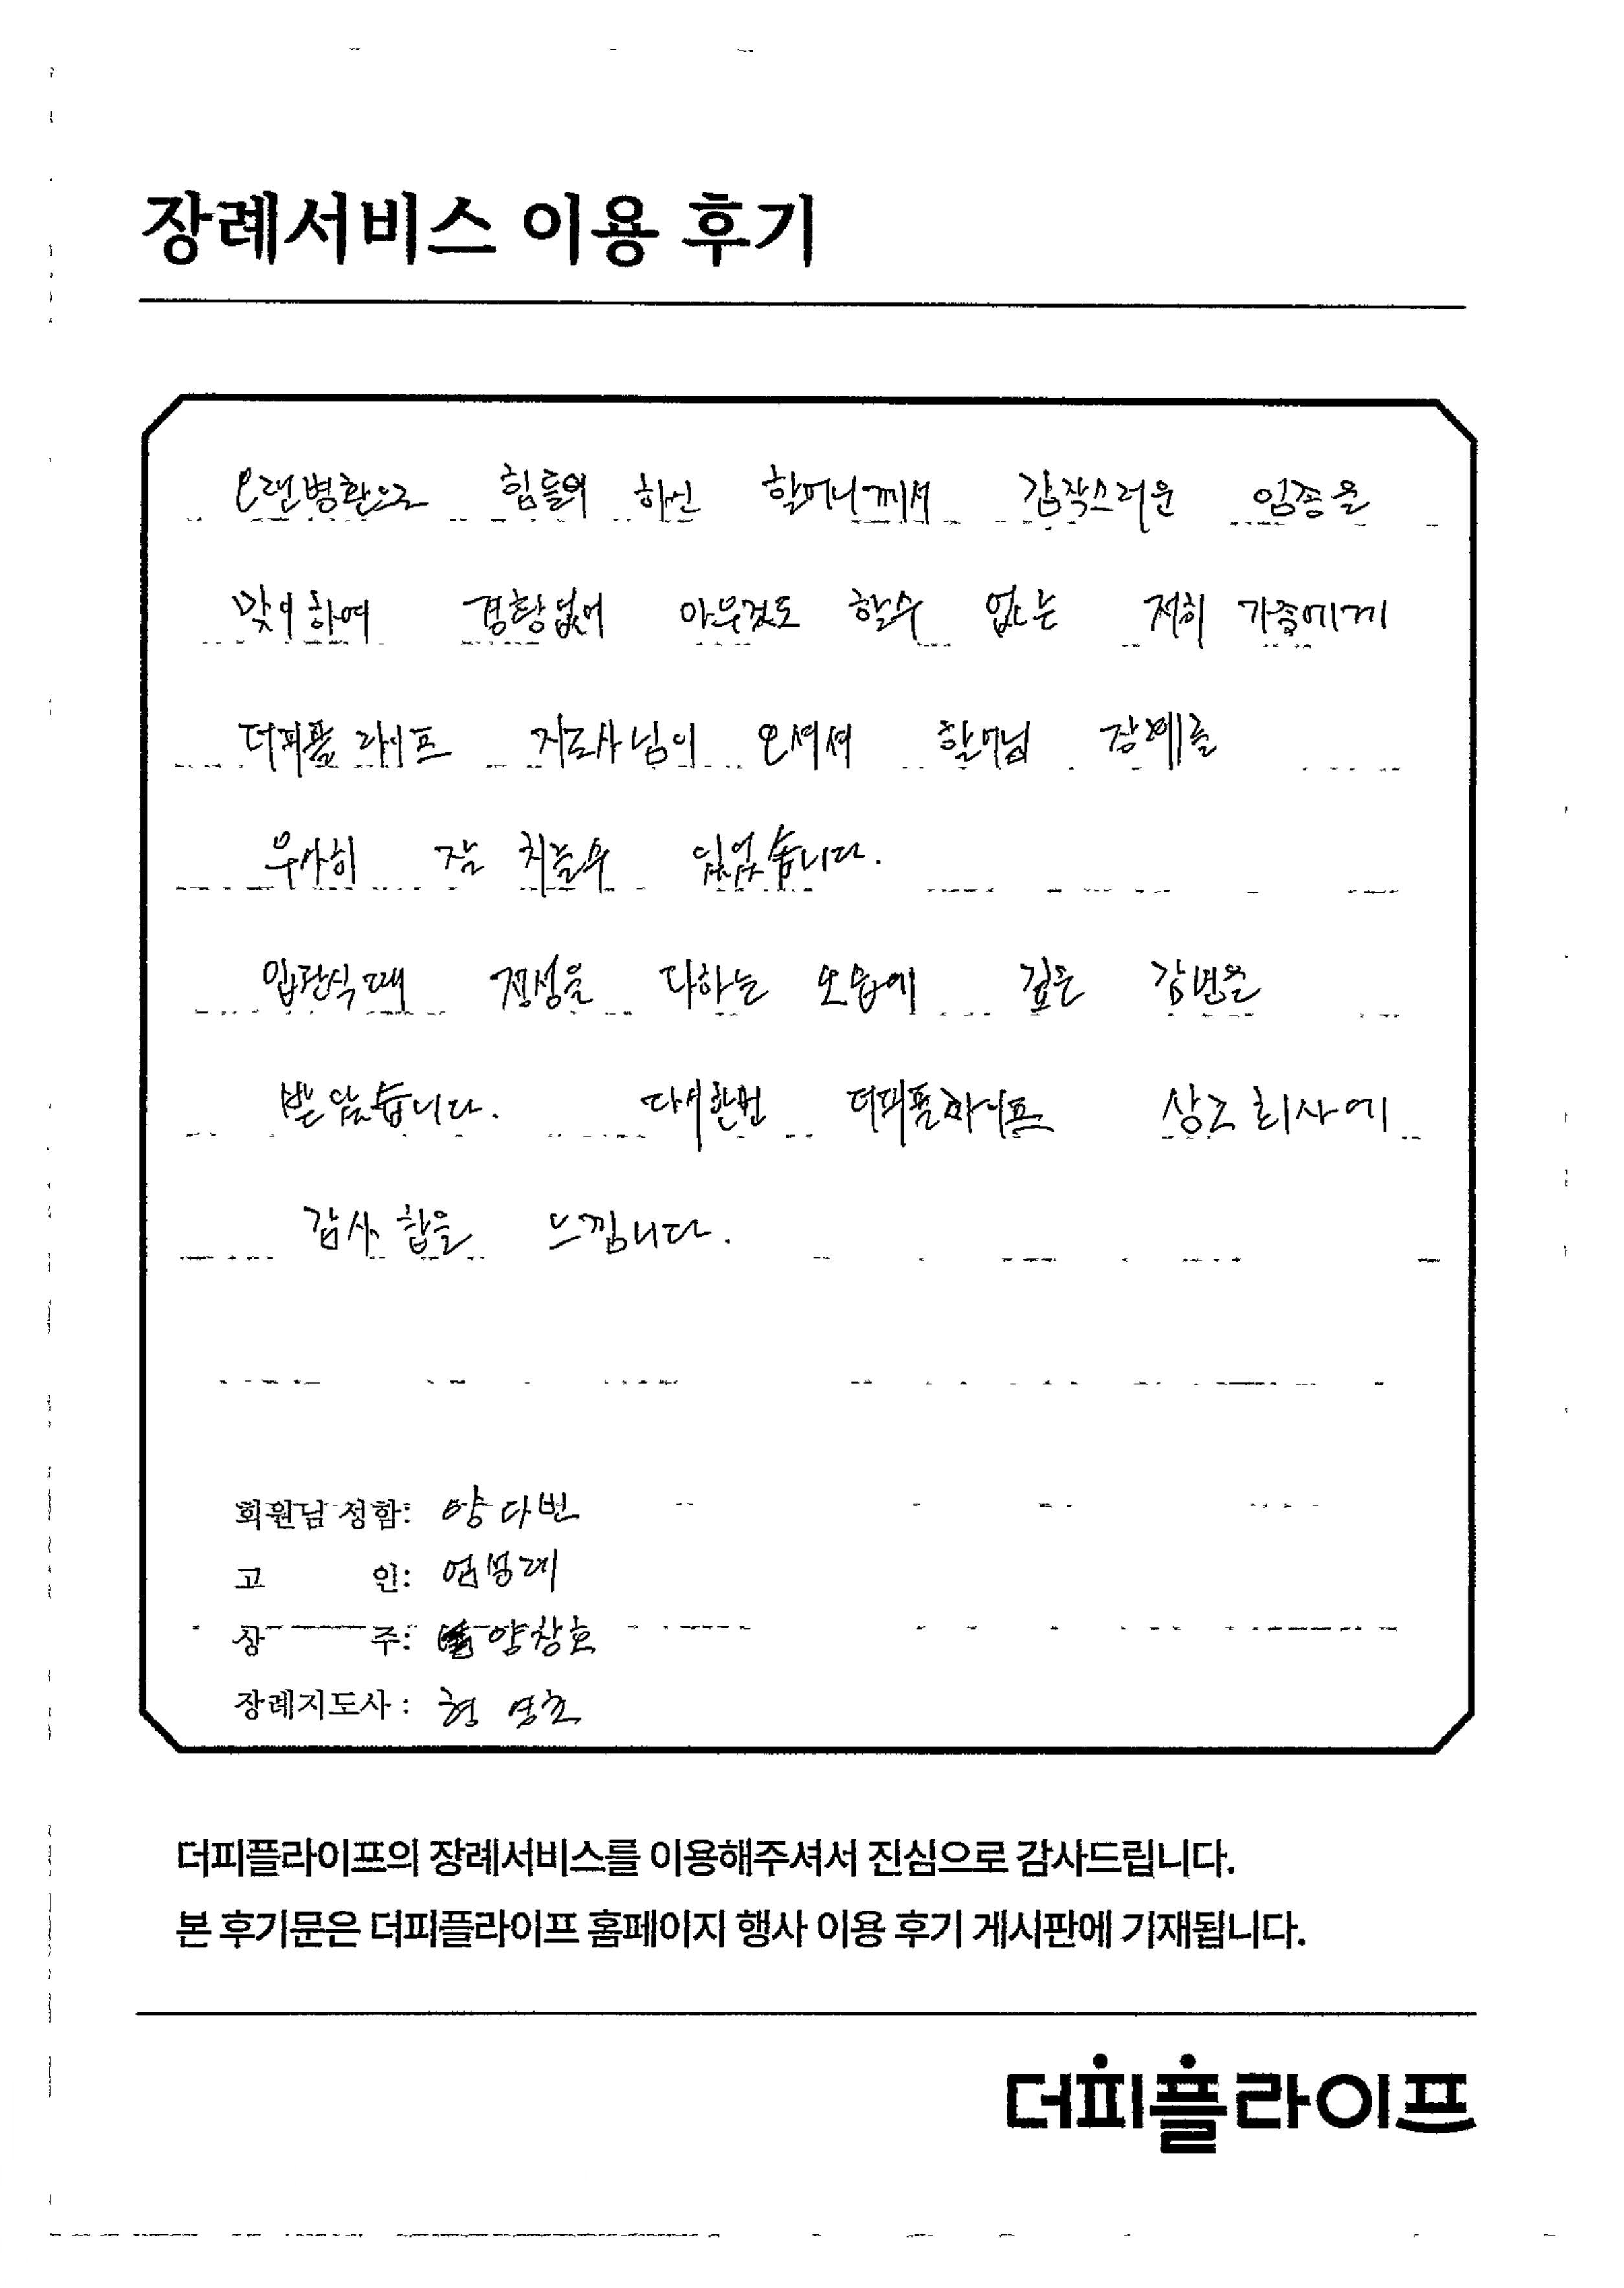 장례서비스 이용 후기
오랜병환으로 힘들어 하신 할머니께서 갑작스러운 임종을
맞이하여 경황없어 아무것도 할수 없는 저희 가족에게
더피플 라이프 지도사님이 오셔서 할머님 장례를
무사히 잘 치늘수 있었습니다.
입관식때 정성을 다하는 모습에 깊은 감면을
받았습니다. 다시한번 더피플라이프 상조회사에
감사 함을 느낍니다.
회원님 성함: 양다빈
고 인:
상 주: 양창호
장례지도사 :
더피플라이프의 장례서비스를 이용해주셔서 진심으로 감사드립니다.
본 후기문은 더피플라이프 홈페이지 행사 이용 후기 게시판에 기재됩니다.
더피플라이프